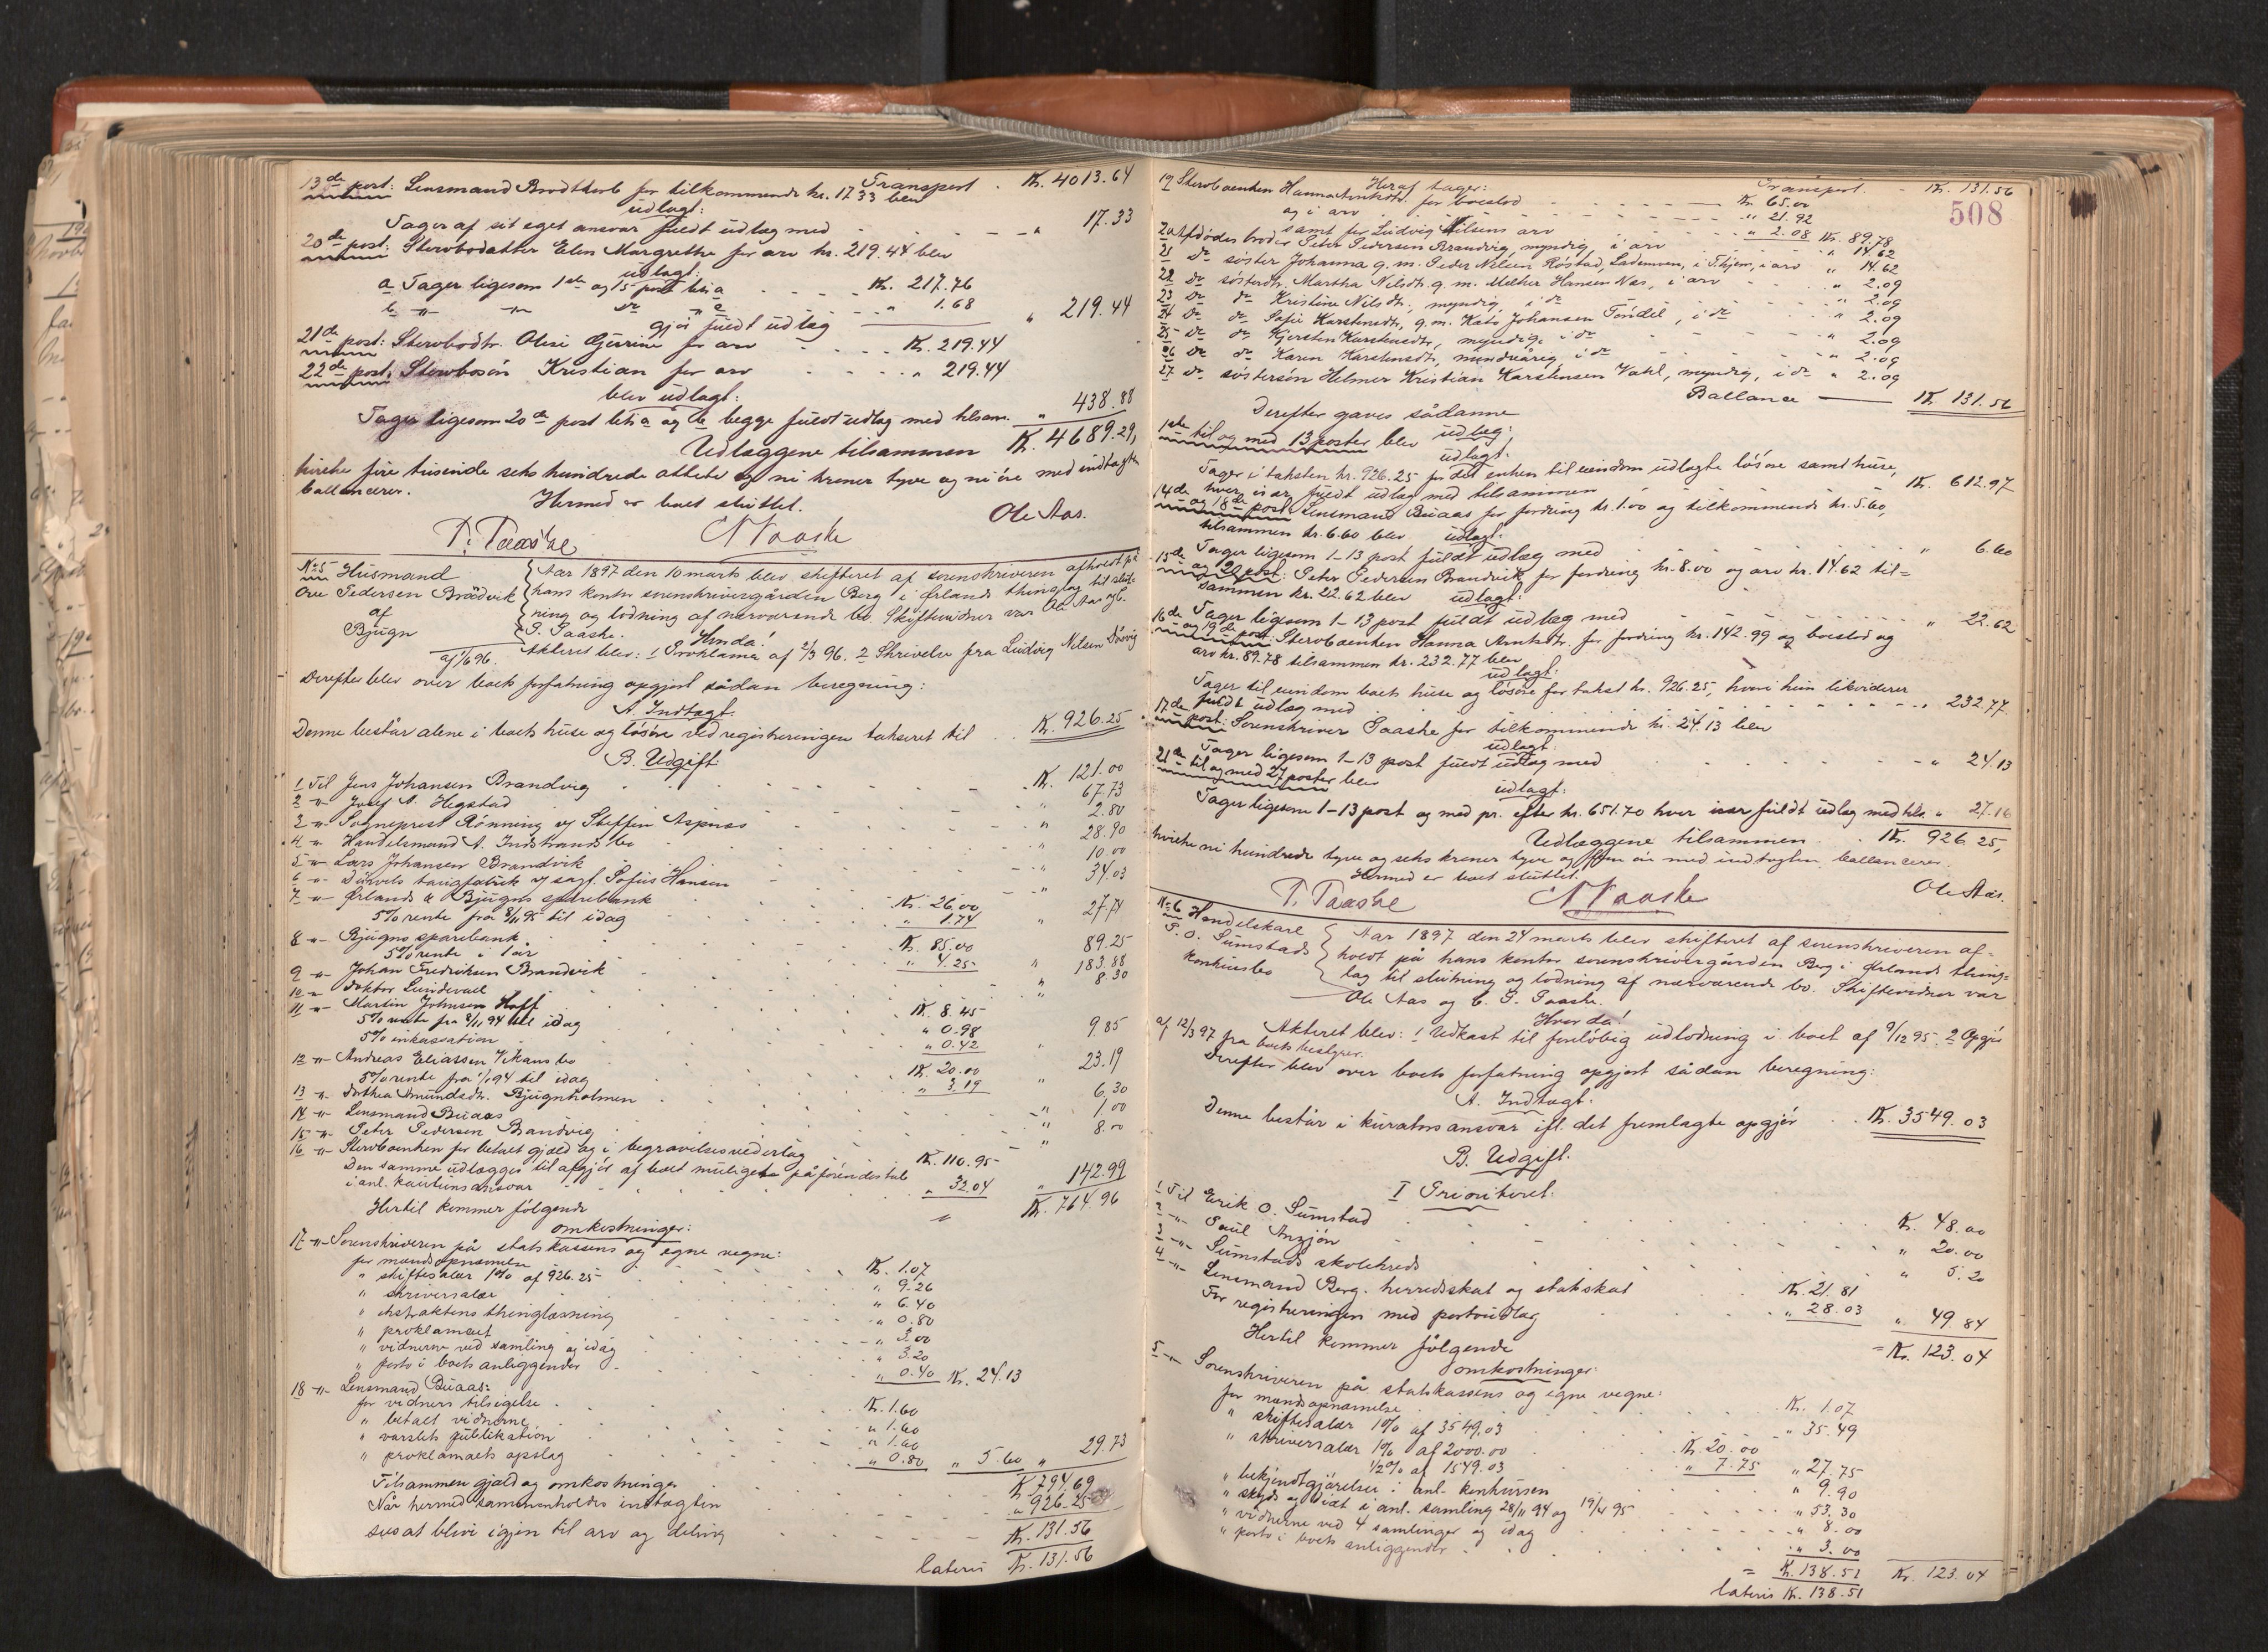 Transport . Kr. 4013.64
13de post: Lensmand Brodtkorb for tilkommende kr. 17 33 blev
udlagt:
Tager af sit eget ansvar fuldt udlæg med " 17.33
20de post: Stervbodatter Elen Margrethe for arv kr. 219.44 blev
udlagt:
a Tager ligesom 1ste og 15 post litr a Kr. 217.76
b " " do " " 1.68
gjør fuldt udlæg " 219.44
21de post: Stervbodtr. Oline Gurine for arv Kr. 219.44
22de post: Stervbosøn Kristian for arv " 219.44
blev udlagt:
Tager ligesom 20de post litr a og b begge fuldt udlæg med tilsam. " 438.88
Udlæggene tilsammen Kr. 4689.29,
hvilke fire tusende seks hundrede otteti og ni kroner tyve og ni øre med indtægten
ballancerer.
Hermed er boet sluttet.
P. Paaske N Paaske Ole Aas.
No 5
Husmand
Ove Pedersen Brødvik
af
Bjugn
Aar 1897 den 10 marts blev skifteret af sorenskriveren afholdt på
hans kontor sorenskrivergården Berg i Ørlands thinglag til slut-
ning og lodning af nærværende bo. Skiftevidner var Ole Aas og C.
P. Paaske.
Hvorda!
Akteret blev: 1 Proklama af 2/3 96. 2 Skrivelse fra Ludvig Nilsen
af 1/6 96.
Derefter blev over boets forfatning opgjort sådan beregning:
A. Indtægt.
Denne består alene i boets huse og løsøre ved registreringen takseret til Kr. 926.25
B. Udgift:
1 Til Jens Johansen Brandvig Kr. 121.00
2 " Josef A. Hegstad " 67.73
3 " Sogneprest Rønning og Steffen Aspnes 2.80
4 " Handelsmand A. Indstrands bo " 28.90
5 " Lars Johansen Brandvik " 10.00
6 " tougfabrik v/ sagf. Sofus Hansen " 34.03
7 " Ørlands & Bjugns sparebank Kr. 26.00
5% rente fra 8/11 95 til idag " 1.74 " 27.74
8 " Bjugns sparebank Kr. 85.00
5% rente i 1 år " 4.25 89.25
9 " Johan Fredriksen Brandvik " 183.88
10 " Doktor Lundevall " 8.30
11 " Martin Johnsen Hoff Kr. 8.45
5% rente fra 8/11 94 til idag " 0.98
5% inkassation " 0.42 " 9.85
12 " Andreas Eliassen Vikans bo Kr. 20.00
5% rente fra 1/1 94 til idag " 3.19 " 23.19
13 " Dorthea Amundsdtr. Bjugnholmen 6.30
14 " Lensmand Buaas " 1.00
15 " Peter Pedersen Brandvig " 8.00
16 " Stervboenken for betalt gjæld og i begravelsesvederlag Kr. 110.95
Den samme udlægges til afgjør af boet muligens påførendes tab
i anl. kautionsansvar " 32.04 " 142.99
Hertil kommer følgende Kr. 764.96
omkostninger:
17 " Sorenskriveren på statskassens og egne vegne:
for mandsopnævnelse Kr. 1.07
" skiftesalær 1% af 926.25 " 9.26
" skriversalær " 6.40
" ekstraktens thinglæsning " 0.80
" proklamaet " 3.00
" vidnerne ved samling og idag " 3.20
" porto i boets anliggender " 0.40 Kr. 24.13
18 " Lensmand Buaas:
for vidners tilsigelse Kr. 1.60
" betalt vidnerne " 1.60
" varslets publikation " 1.60
" proklamaets opslag " 0.80 " 5.60 " 29.73
Tilsammen gjæld og omkostninger Kr. 794.69
Når hermed sammenholdes indtægten " 926.25
sees at blive igjen til arv og deling Kr. 131.56
lateris Kr. 131.56
Transport. Kr. 131.56
508
Heraf tager:
19 Stervboenken Hanna Arntsdtr. for boeslod Kr. 65.00
og i arv " 21.92
samt for Ludvig Nilsens arv " 2.08 Kr. 89.78
20 Afdødes broder Peter Pedersen Brandvig, myndig, i arv " 14.62
21 Do søster Johanna g.m. Peder Nilsen Røstad, Lademoen, i T.hjem, i arv " 14.62
22 Do søsterdtr. Martha Nilsdtr. g.m. Melher Hansen Næs, i arv " 2.09
23 Do do Kristine Nilsdtr., myndig, i do " 2.09
24 Do do Sofie Karstensdtr., g.m. Kato Johansen Tøndel, i do " 2.09
25 Do do Kjersten Karstensdtr., myndig, i do " 2.09
26 Do do Karen Karstensdtr., mindreårig, i do " 2.09
27 Do søstersøn Helmer Kristian Karstensen Vatl, myndig, i do " 2.09
Ballance Kr. 131.56
Derefter gaves sådanne
udlæg:
1ste til og med 13 poster blev
udlagt:
Tager i taksten kr. 926.25 for det enken til eiendom udlagte løsøre samt huse,
hver især fuldt udlæg med tilsammen Kr. 612.97
14de og 18de post: Lensmand Buaas for fordring kr. 1.00 og tilkommende kr. 5.60,
tilsammen kr. 6.60 blev udlagt:
Tager ligesom 1-13 post fuldt udlæg med " 6.60
15de og 20 post: Peter Pedersen Brandvik for fordring kr. 8.00 og arv kr. 14.62 til-
sammen kr. 22.62 blev udlagt:
Tager ligesom 1-13 post fuldt udlæg med " 22.62
16de og 19de post: Stervboenken Hanna Arntsdtr. for fordring kr. 142.99 og boeslod og
arv kr. 89.78 tilsammen kr. 232.77 blev
udlagt:
Tager til eiendom boets huse og løsøre for takst kr. 926.25, hvori hun likviderer
fuldt udlæg med " 232.77
17de post: Sorenskriver Paaske for tilkommende kr. 24.13 blev
udlagt:
Tager ligesom 1-13 post fuldt udlæg med " 24.13
21de til og med 27 poster blev
udlagt:
Tager ligesom 1-13 post og med pr. efter kr. 651.70 hver især fuldt udlæg med tils. " 27.16
Udlæggene tilsammen Kr. 926.25,
hvilke ni hundrede tyve og seks kroner tyve og fem øre med indtægten ballancerer.
Hermed er boet sluttet.
P. Paaske N Paaske Ole Aas.
No 6
Handelskarl
P. O. Sumstads
konkursbo
Aar 1897 den 24 marts blev skifteret af sorenskriveren af-
holdt på hans kontor sorenskrivergården Berg i Ørlands thing-
lag til slutning og lodning af nærværende bo. Skiftevidner var
Ole Aas og C. P. Paaske.
Hvorda!
Akteret blev: 1 Udkast til foreløbig udlodning i boet af 9/12 95. 2 Opgjør
af 12/3 97 fra boets bestyrer.
Derefter blev over boets forfatning opgjort sådan beregning:
A. Indtægt:
Denne består i kurators ansvar ifl. det fremlagte opgjør Kr. 3549.03
B. Udgift.
I Prioriteret:
1 Til Erik O. Sumstad Kr. 48.00
2 " Paul Anzjøn " 20.00
3 " Sumstads skolekreds " 5.20
4 " Lensmand Berg. herredsskat og statsskat Kr. 21.81
For registreringen med portoudlæg " 28.03 " 49.84
Hertil kommer følgende = Kr. 123.04
omkostninger:
5 " Sorenskriveren på statskassens og egne vegne:
for mandsopnævnelse Kr. 1.07
" skiftesalær 1% af 3549.03 " 35.49
" skriversalær 1% af 2000.00 Kr. 20.00
1/2% af 1549.03 " 7.75 " 27.75
" bekjendtgjørelser i anl. konkursen " 9.90
" skyds og diæt i anl. samling 28/11 94 og 19/4 95 " 53.30
" vidnerne ved 4 samlinger og idag " 8.00
" porto i boets anliggender " 3.00
= Kr. 138.51 Kr. 123.04
lateris Kr. 138.51